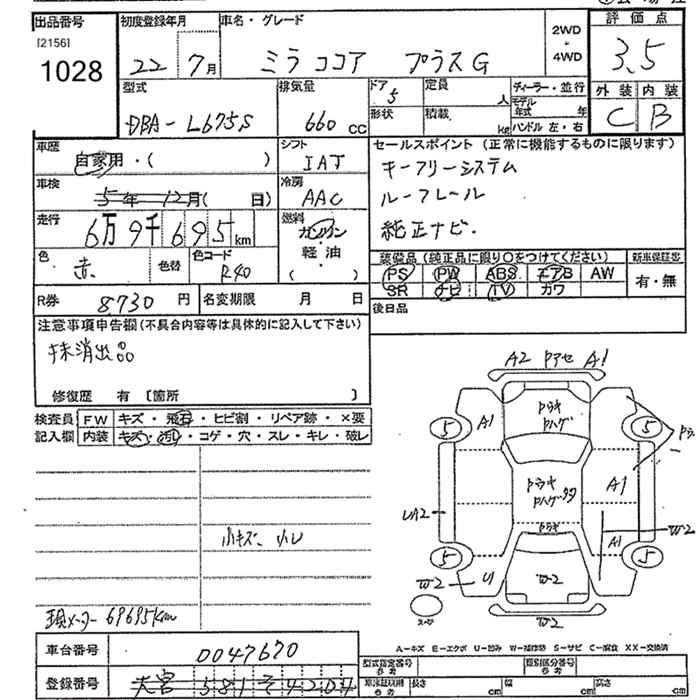 出品番号 初度登録年月 車名・グレード 評価点
[2156] 22 7月 ミラココア プラスG 2WD・4WD 3.5
1028
型式 排気量 ドア 定員 ディーラー・並行 外装 内装
DBA-L675S 660 CC 5 人 モデル年式 年 C B
形状 積載 kg ハンドル 左・右
車歴 自家用・( ) シフト IAT セールスポイント (正常に機能するものに限ります)
車検 5年 12月( 日) 冷房 AAC キーフリーシステム
ルーフレール
走行 6万9千695km 燃料 ガソリン・軽油・( ) 純正ナビ.
色 赤 色替 色コード R40
装備品 (純正品に限り○をつけてください) 新車保証書
PS PW ABS エアB AW 有・無
SR ナビ TV カワ
R券 8730円 名変期限 月 日 後日品
注意事項申告欄 (不具合内容等は具体的に記入して下さい)
抹消出品
修復歴 有 [箇所 ]
検査員 FW キズ・飛石・ヒビ割・リペア跡・×要
記入欄 内装 キズ・汚レ・コゲ・穴・スレ・キレ・破レ
小キズ、小レ
現メーター 69695km
A2 アセ A1
A1
5 5
A1
UA2
A1 W2
5 5
W2 U W2
W2
A=キズ E=エクボ U=凹み W=補修跡 S=サビ C=腐食 XX=交換済
車台番号 0047670
型式指定番号 参考 類別区分番号 参考
登録番号 大宮 581 そ 4204
車検証明用 参考 長さ cm 幅 cm 高さ cm